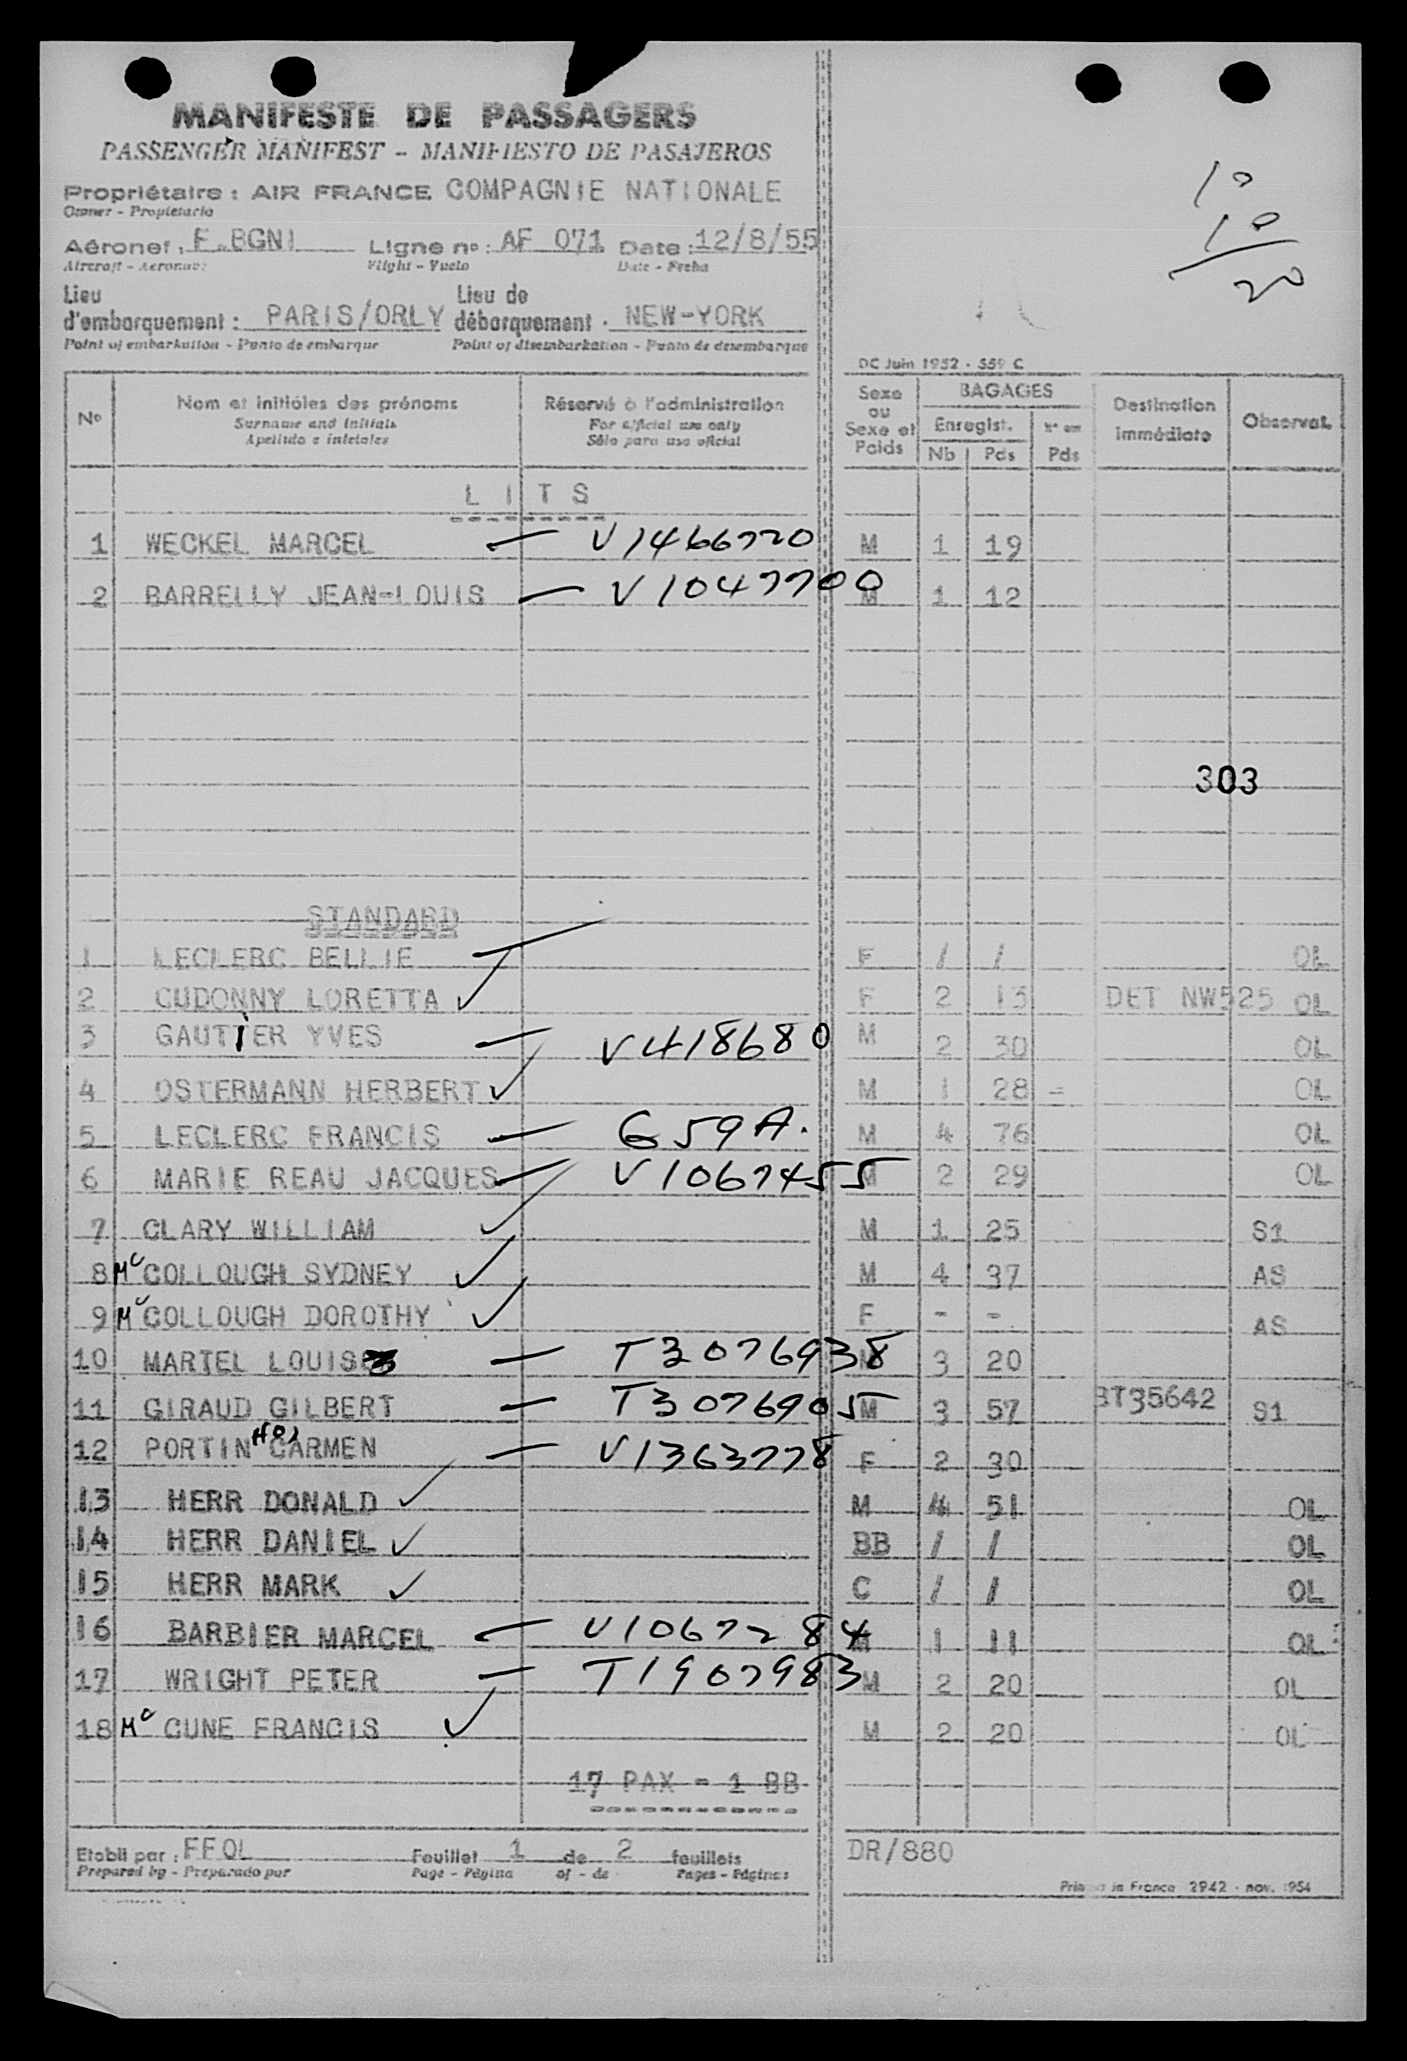 MANIFESTE DE PASSAGERS
PASSENGER MANIFEST - MANIFIESTO DE PASAJEROS
Propriétaire : AIR FRANCE COMPAGNIE NATIONALE
Owner - Propietario
Aéronef : F.BGNI Ligne n° : AF 071 Date : 12/8/55
Aircraft - Aeronave: Flight - Vuelo Date - Fecha
Lieu d'embarquement : PARIS/ORLY Lieu de débarquement . NEW-YORK
Point of embarkation - Punto de embarque Point of disembarkation - Punto de desembarque
10
10
20
DC Juin 1952 - 559 C
N° Nom et initiales des prénoms Réservé à l'administration Sexe ou Sexe et Poids BAGAGES Destination immédiate Observat.
Surname and initials For official use only Enregist. N° en
Apellido e iniciales Sólo para uso oficial Nb Pds Pds
LITS
1 WECKEL MARCEL — V1466720 M 1 19
2 BARRELLY JEAN-LOUIS — V1047700 M 1 12
303
STANDARD
1 LECLERC BELLIE F / / OL
2 CUDONNY LORETTA ✓ F 2 13 DET NW525 OL
3 GAUTIER YVES — V418680 M 2 30 OL
4 OSTERMANN HERBERT ✓ M 1 28 = OL
5 LECLERC FRANCIS — G59A. M 4 76 OL
6 MARIE REAU JACQUES — V1067455 M 2 29 OL
7 CLARY WILLIAM ✓ M 1 25 S1
8 Mc COLLOUGH SYDNEY ✓ M 4 37 AS
9 Mc COLLOUGH DOROTHY ✓ F - - AS
10 MARTEL LOUIS — T3076938 M 3 20
11 GIRAUD GILBERT — T3076905 M 3 57 BT35642 S1
12 PORTIN CARMEN — V1363778 F 2 30
13 HERR DONALD ✓ M 4 51 OL
14 HERR DANIEL ✓ BB / / OL
15 HERR MARK ✓ C / / OL
16 BARBIER MARCEL — V1067284 M 1 11 OL
17 WRIGHT PETER — T1907983 M 2 20 OL
18 Mc CUNE FRANCIS ✓ M 2 20 OL
17 PAX - 1 BB
Etabli par : FFOL Feuillet 1 de 2 feuillets DR/880
Prepared by - Preparado por Page - Página of - de Pages - Páginas
Printed in France 2942 - nov. 1954